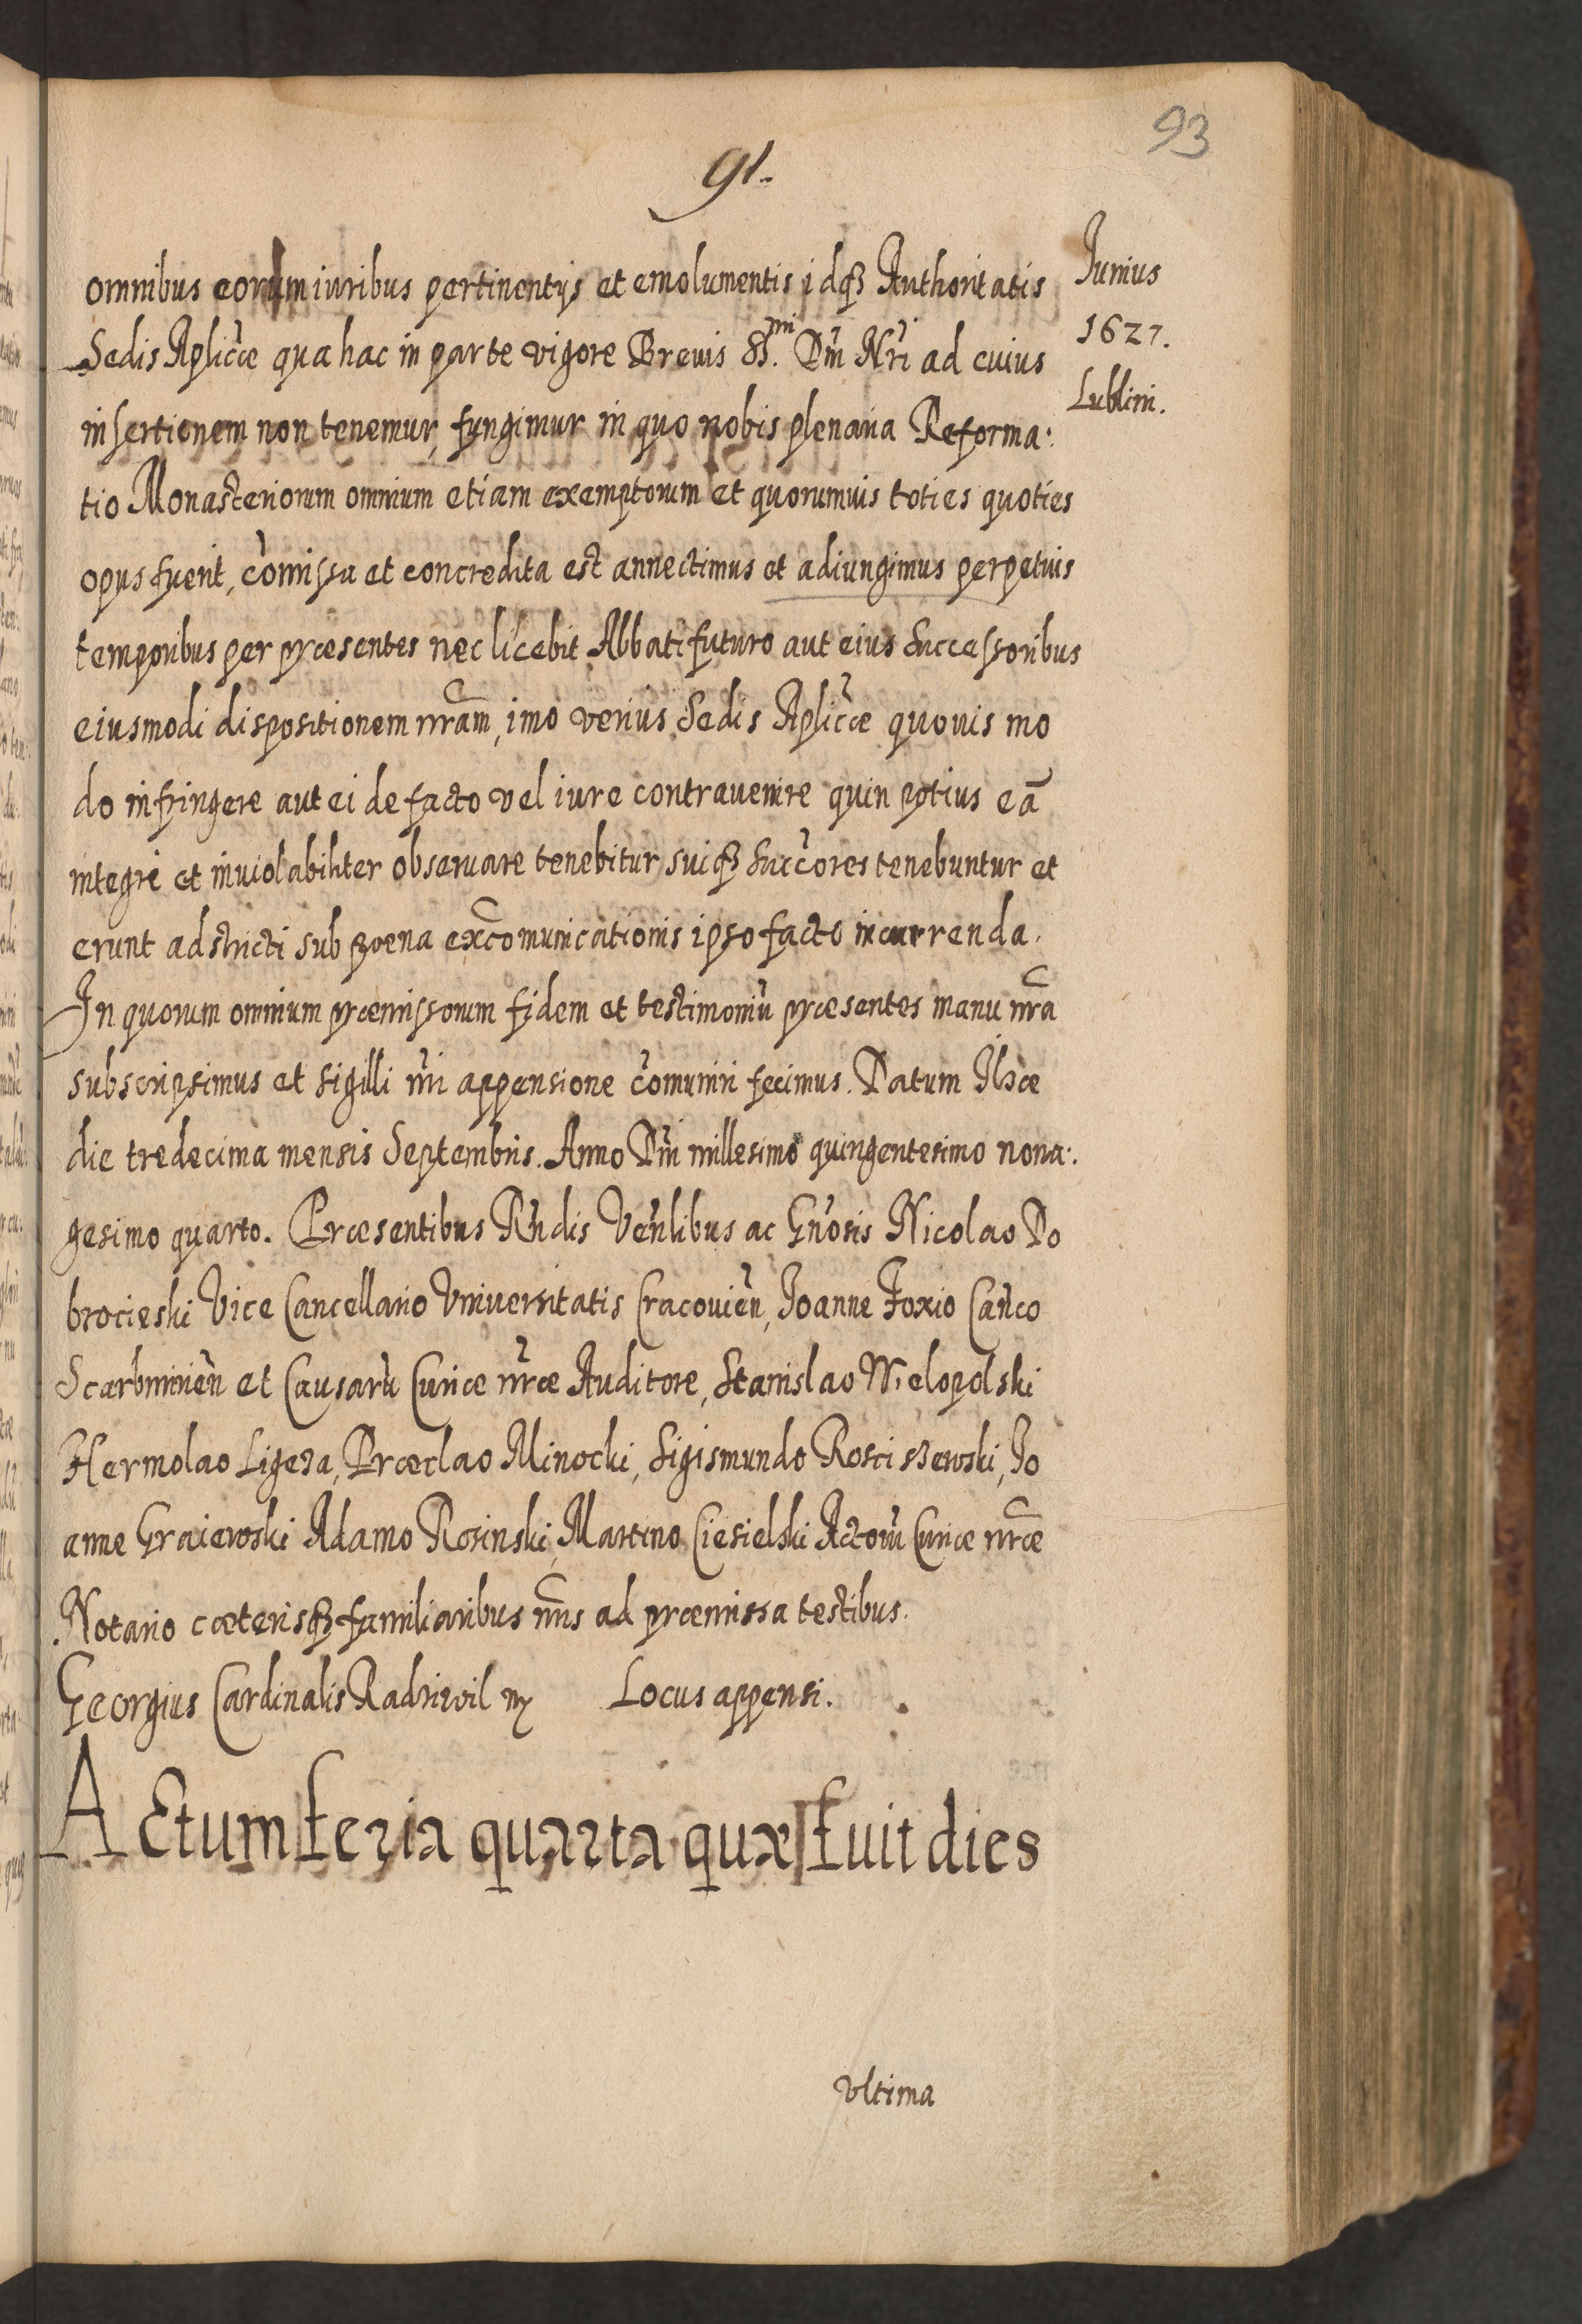 93
91.
omnibus eorum iuribus pertinentijs et emolumentis idqȝ Authoritatis
Sedis Aplicæ qua hac in parte vigore Breuis SS.mi Dni Nri ad cuius
insertionem non tenemur, fungimur in quo nobis plenaria Reforma:
tio Monasteriorum omnium etiam exemptorum et quorumuis toties quoties
opus fuerit, comissa et concredita est annectimus et adiungimus perpetuis
temporibus per præsentes nec licebit Abbati futuro aut eius Successoribus
eiusmodi dispositionem nram, imo verius Sedis Aplicæ quouis mo
do infringere aut ei de facto vel iure contrauenire quin potius eā
integre et inuiolabiliter obseruare tenebitur, suiqȝ Succores tenebuntur et
erunt adstricti sub poena excomunicationis ipso facto incurrenda.
In quorum omnium præmissorum fidem et testimoniū præsentes manu nra
subscripsimus et sigilli nri appensione comuniri fecimus. Datum Ilzæ
die tredecima mensis Septembris. Anno Dni millesimo quingentesimo nona:
gesimo quarto. Præsentibus Rndis Venlibus ac Gnosis Nicolao Do
brocieski Vice Cancellario Vniuersitatis Cracouien, Joanne Foxio Canco
Scarbimirien et Causarū Curiæ nræ Auditore, Stanislao Wielopolski
Hermolao Ligeza, Præclao Minocki, Sigismundo Rosciszewski, Jo
anne Graiewski Adamo Rosinski, Martino Ciesielski Actorū Curiæ nræ
Notario cæterisqȝ familiaribus nris ad præmissa testibus.
Georgius Cardinalis Radziwil mp Locus appensi.
Actum feria quarta quæ fuit dies
vltima
Junius
1627.
Lublini.